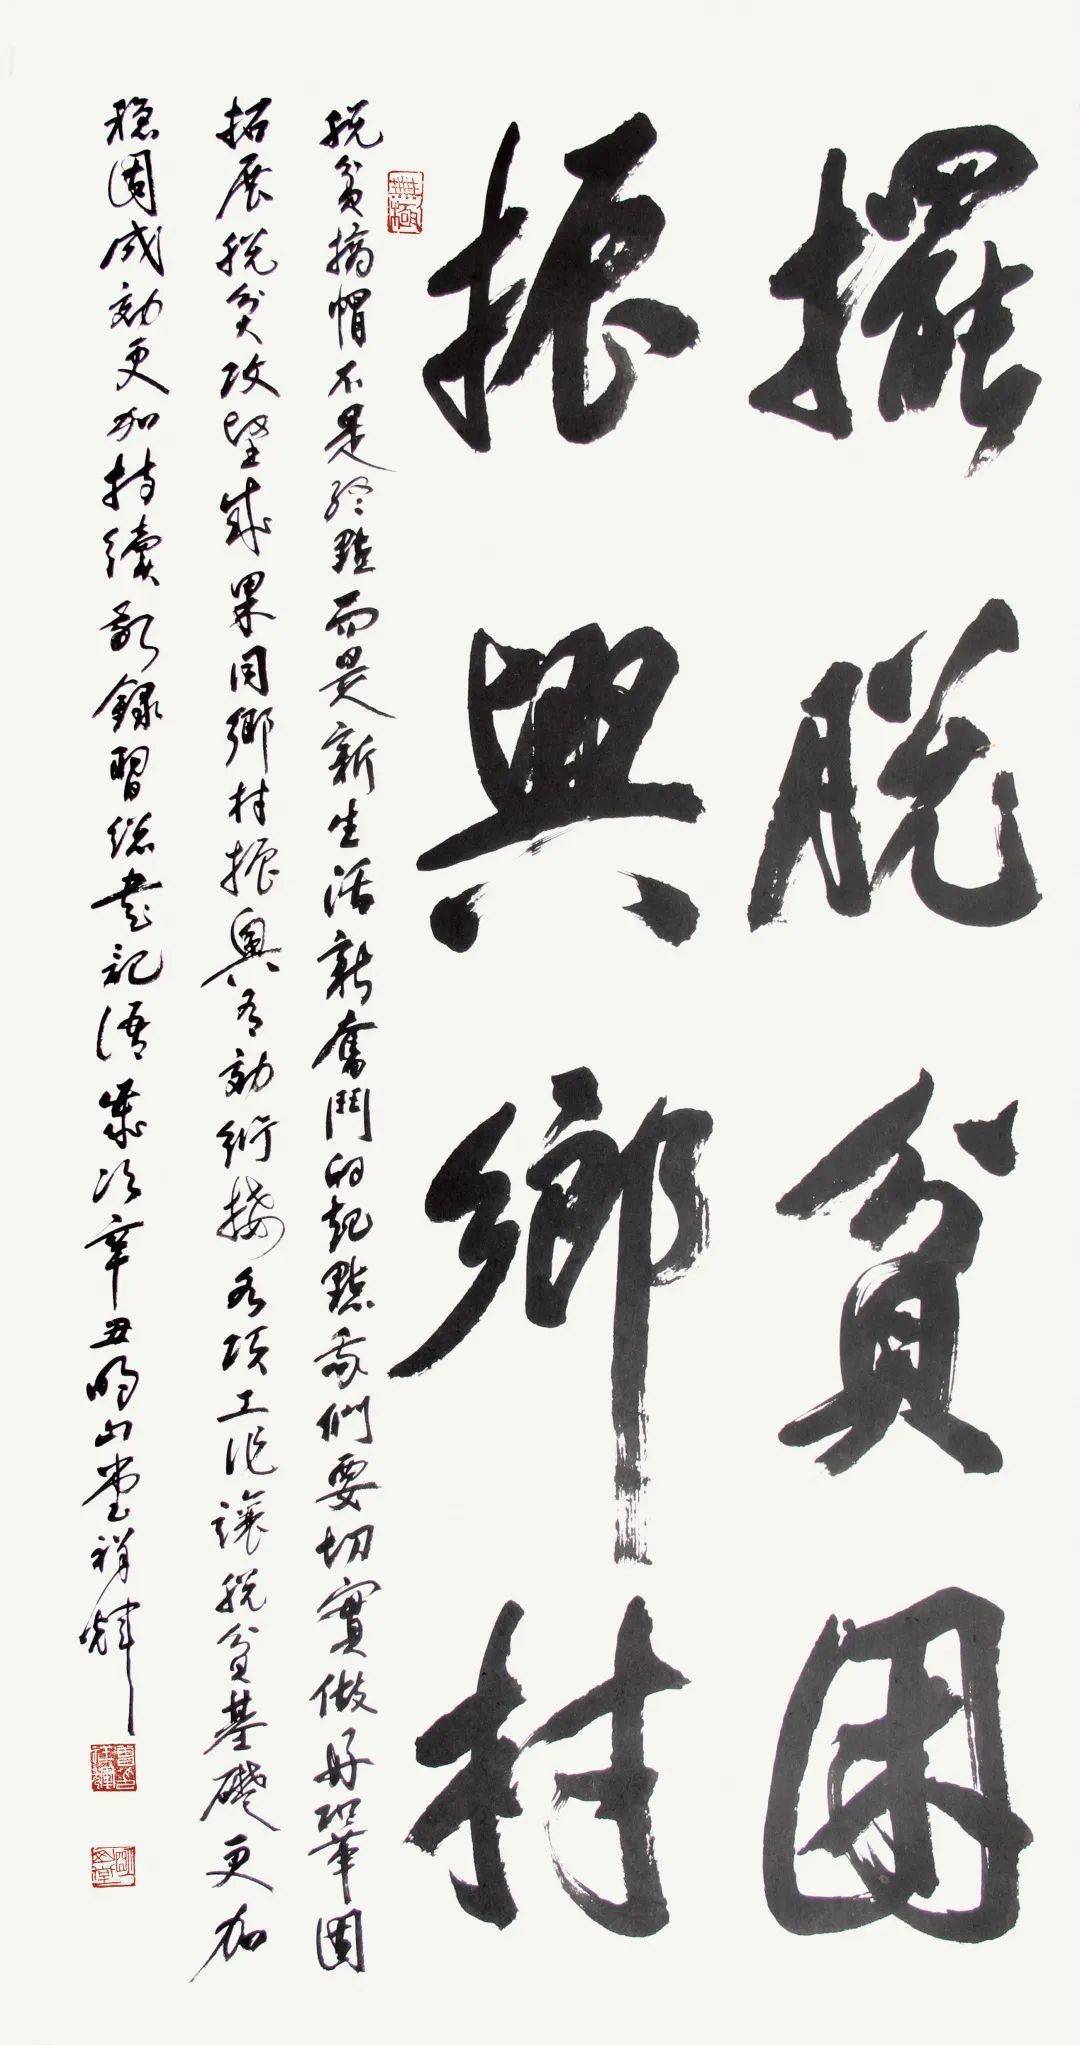 擺脫貧困
振興鄉村
無極
脱貧摘帽不是終點而是新生活新奮鬥的起點我們要切實做好鞏固
拓展脱貧攻堅成果同鄉村振興有効銜接各項工作讓脱貧基礎更加
穩固成効更加持續敬録習總書記語歲次辛丑明山堂祥輝